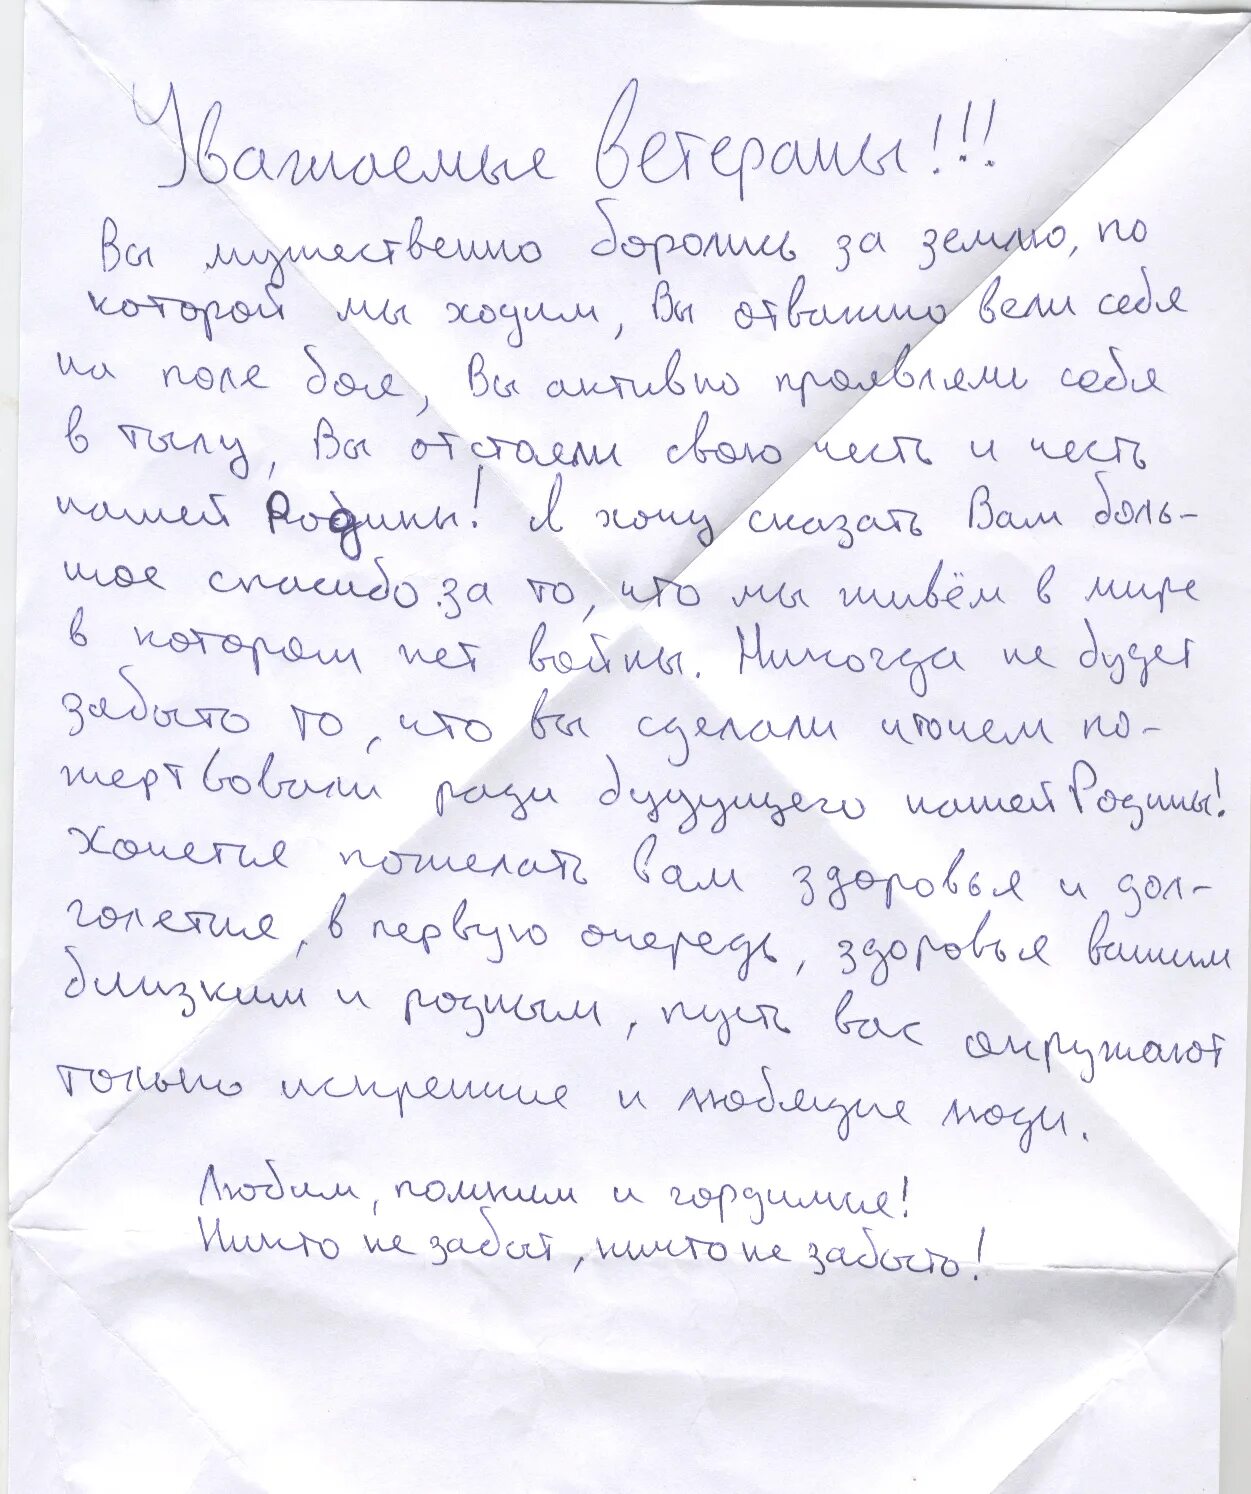 Уважаемые ветераны!!!
Вы мужественно боролись за землю, по
которой мы ходим, Вы отважно вели себя
на поле боя, Вы активно проявляли себя
в тылу, Вы отстояли свою честь и честь
нашей Родины! Я хочу сказать Вам боль-
шое спасибо за то, что мы живём в мире
в котором нет войны. Никогда не будет
забыто то, что вы сделали и чем по-
жертвовали ради будущего нашей Родины!
Хочется пожелать вам здоровья и дол-
голетия, в первую очередь, здоровья вашим
близким и родным, пусть вас окружают
только искренние и любящие люди.
Любим, помним и гордимся!
Никто не забыт, ничто не забыто!